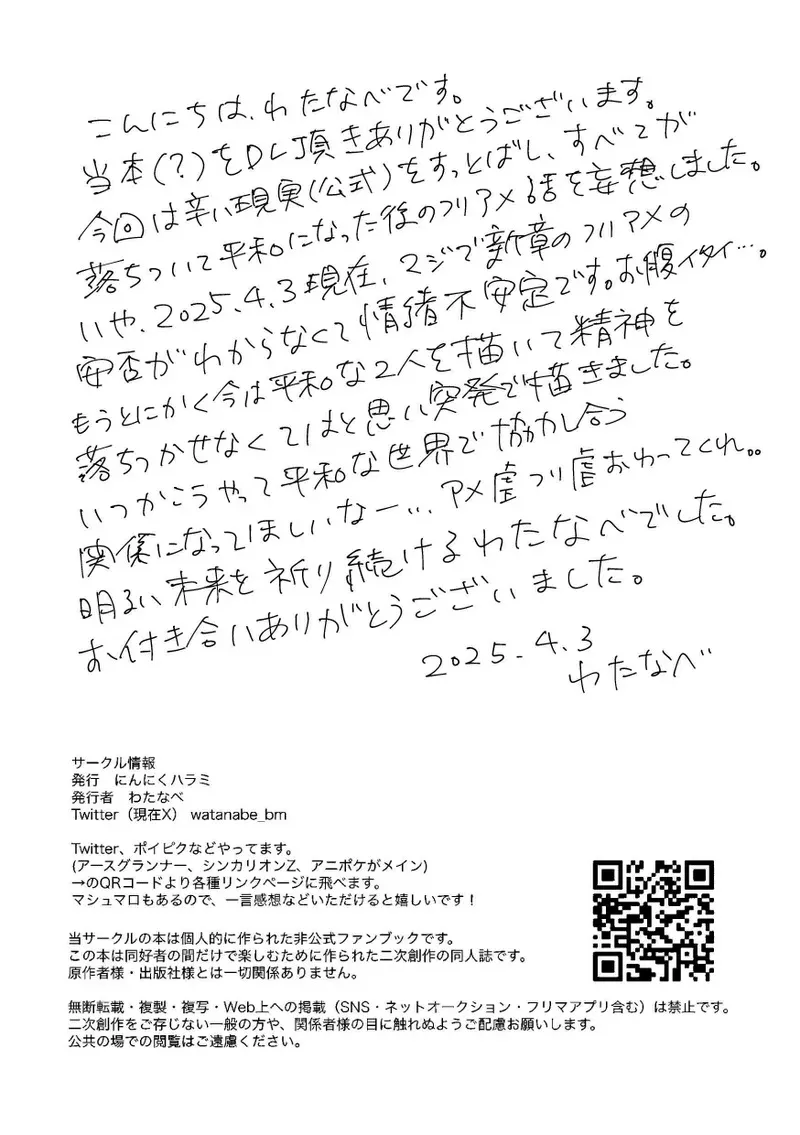 こんにちは、わたなべです。
当本(?)をDL頂きありがとうございます。
今回は辛い現実(公式)をすっとばし、すべてが
落ちついて平和になった後のフリアメ話を妄想しました。
いや、2025.4.3現在、マジで新章のフリアメの
安否がわからなくて情緒不安定です。お腹イタイ…。
もうとにかく今は平和な2人を描いて精神を
落ちつかせなくてはと思い突発で描きました。
いつかこうやって平和な世界で協力し合う
関係になってほしいなー… アメ虐フリ虐おわってくれ。。
明るい未来を祈り続けるわたなべでした。
お付き合いありがとうございました。
2025.4.3
わたなべ
サークル情報
発行　にんにくハラミ
発行者　わたなべ
Twitter（現在X） watanabe_bm
Twitter、ポイピクなどやってます。
(アースグランナー、シンカリオンZ、アニポケがメイン)
→のQRコードより各種リンクページに飛べます。
マシュマロもあるので、一言感想などいただけると嬉しいです！
当サークルの本は個人的に作られた非公式ファンブックです。
この本は同好者の間だけで楽しむために作られた二次創作の同人誌です。
原作者様・出版社様とは一切関係ありません。
無断転載・複製・複写・Web上への掲載（SNS・ネットオークション・フリマアプリ含む）は禁止です。
二次創作をご存じない一般の方や、関係者様の目に触れぬようご配慮お願いします。
公共の場での閲覧はご遠慮ください。